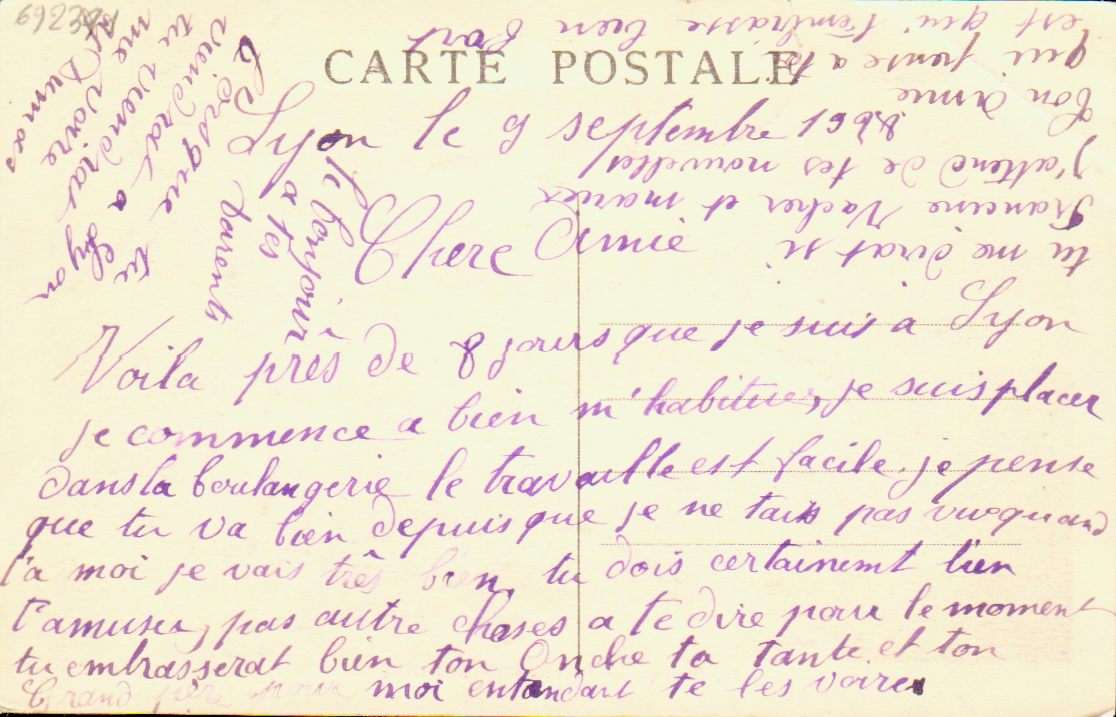 692371
CARTE POSTALE
Lyon le 9 septembre 1928
Chere Amie
Voila près de 8 jours que je suis a Lyon
je commence a bien m'habituer, je suis placer
dans la boulangerie le travaille est facile. je pense
que tu va bien depuis que je ne tais pas vu quand
t'a moi je vais três bien, tu dois certainemt bien
t'amuser, pas autre choses a te dire pour le moment
tu embrasserat bien ton Oncle ta tante et ton
Grand père pour moi entandant te les voire
tu me dirat si
Francine Vacher et marier
J'attend de tes nouvelles
ton amie
qui pense a toi
est qui t'embrasse bien fort
le bonjour
a tes
parents
Lorsque tu
viendrat a Lyon
tu viendras
me voire